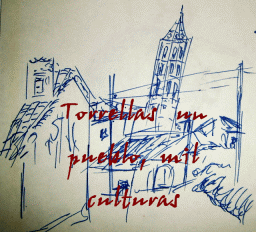 Torrellas un
pueblo, mil
culturas